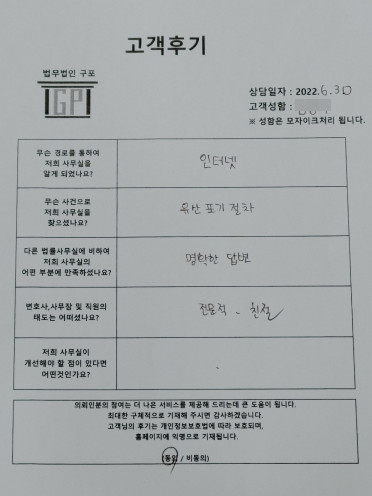 고객후기
법무법인 구포
IGPI
상담일자 : 2022.6.30
고객성함 :
※ 성함은 모자이크처리 됩니다.
무슨 경로를 통하여
저희 사무실을
알게 되었나요?
인터넷
무슨 사건으로
저희 사무실을
찾으셨나요?
유산 포기 절차
다른 법률사무실에 비하여
저희 사무실의
어떤 부분에 만족하셨나요?
명확한 답변
변호사,사무장 및 직원의
태도는 어떠셨나요?
전문적 、 친절
저희 사무실이
개선해야 할 점이 있다면
어떤것인가요?
.
의뢰인분의 참여는 더 나은 서비스를 제공해 드리는데 큰 도움이 됩니다.
최대한 구체적으로 기재해 주시면 감사하겠습니다.
고객님의 후기는 개인정보보호법에 따라 보호되며,
홈페이지에 익명으로 기재됩니다.
(동의 / 비동의)